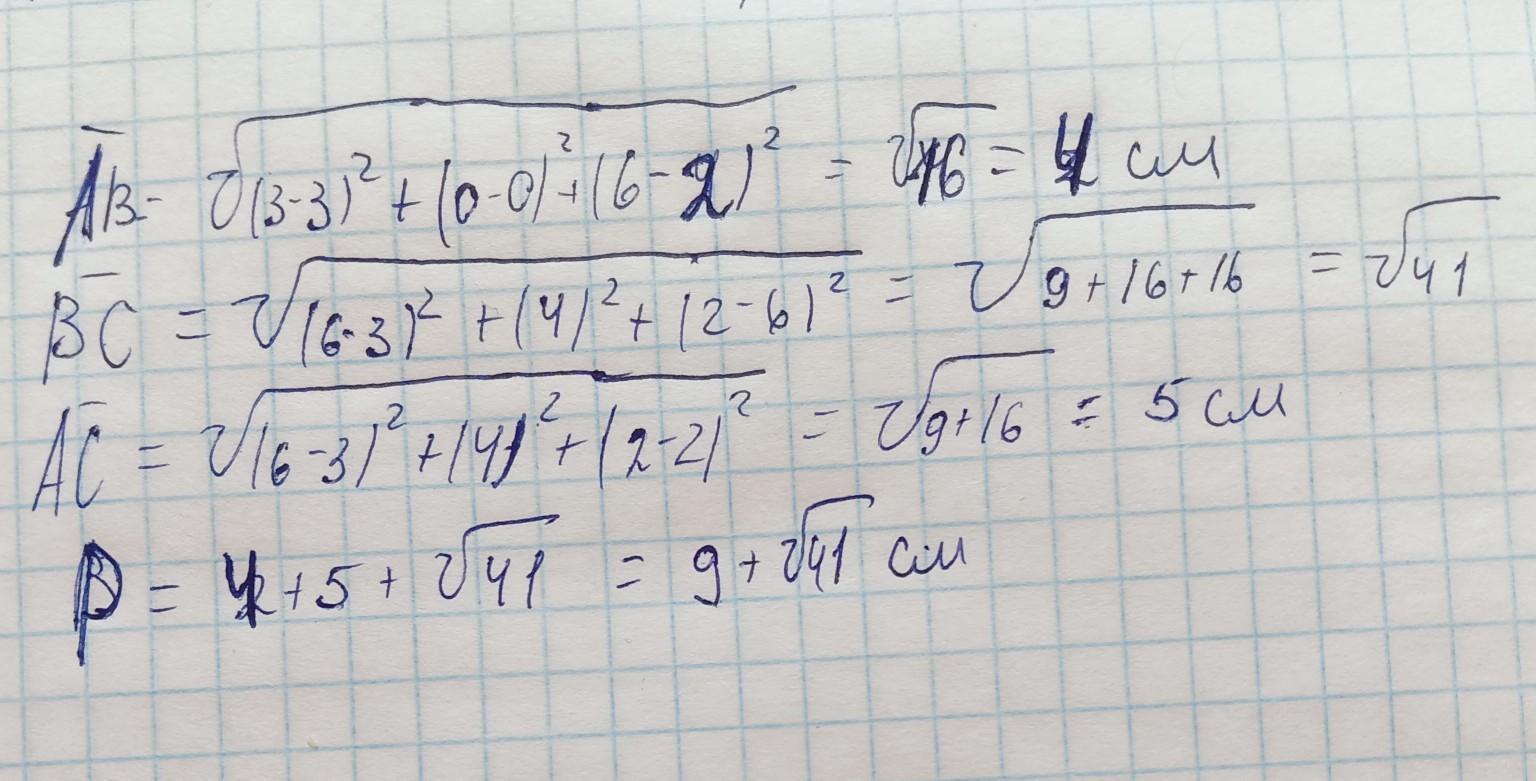 AB = √(3-3)² + (0-0)² + (6-2)² = √16 = 4 см
BC = √(6-3)² + (4)² + (2-6)² = √9+16+16 = √41
AC = √(6-3)² + (4)² + (2-2)² = √9+16 = 5 см
P = 4+5+√41 = 9+√41 см